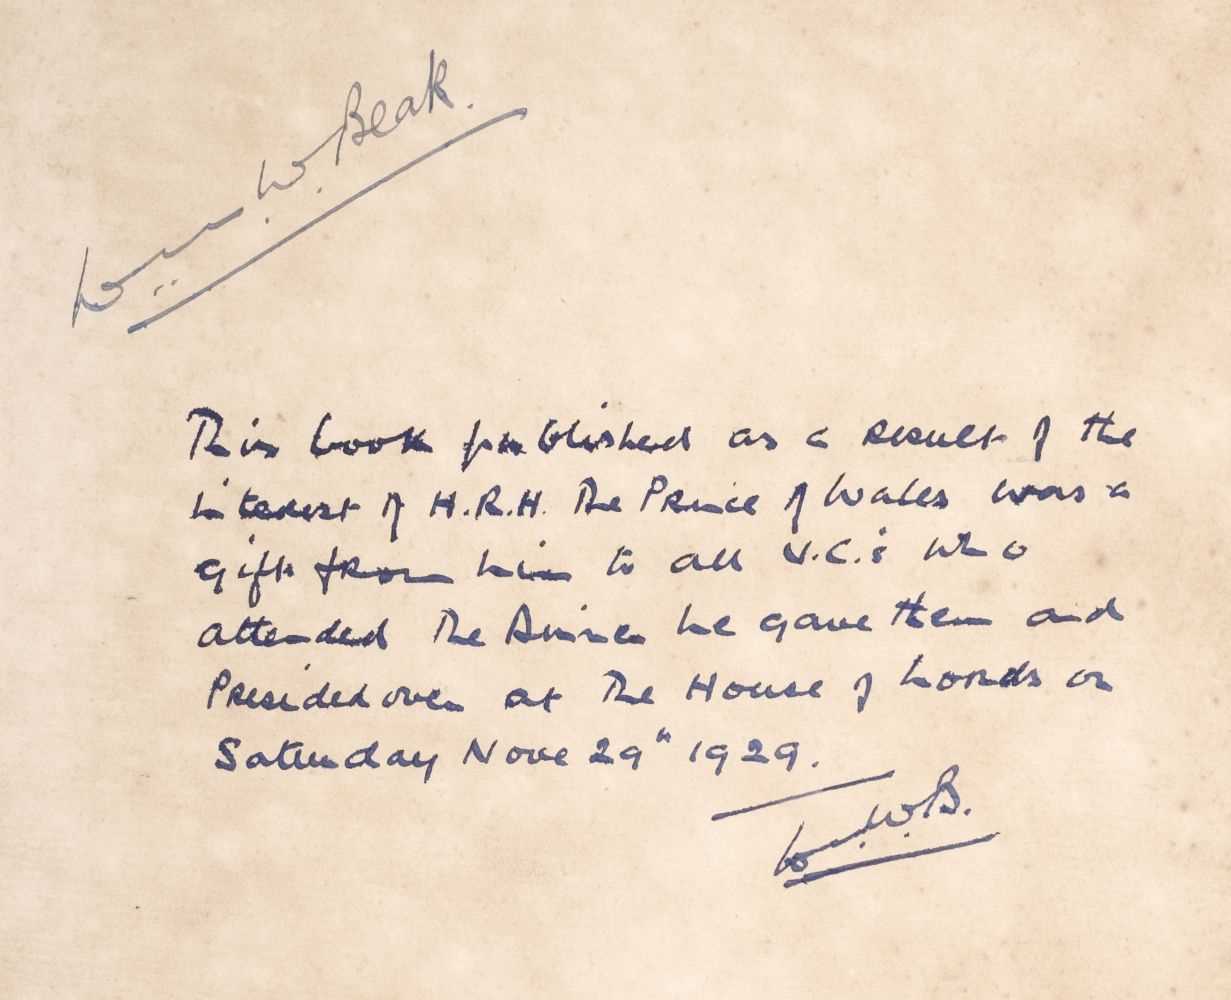 W. Beak.
This book published as a result of the
interest of H.R.H. The Prince of Wales was a
gift from him to all V.C.s who
attended The Dinner he gave them and
Presided over at The House of Lords on
Saturday Nove 29th 1929.
W.B.